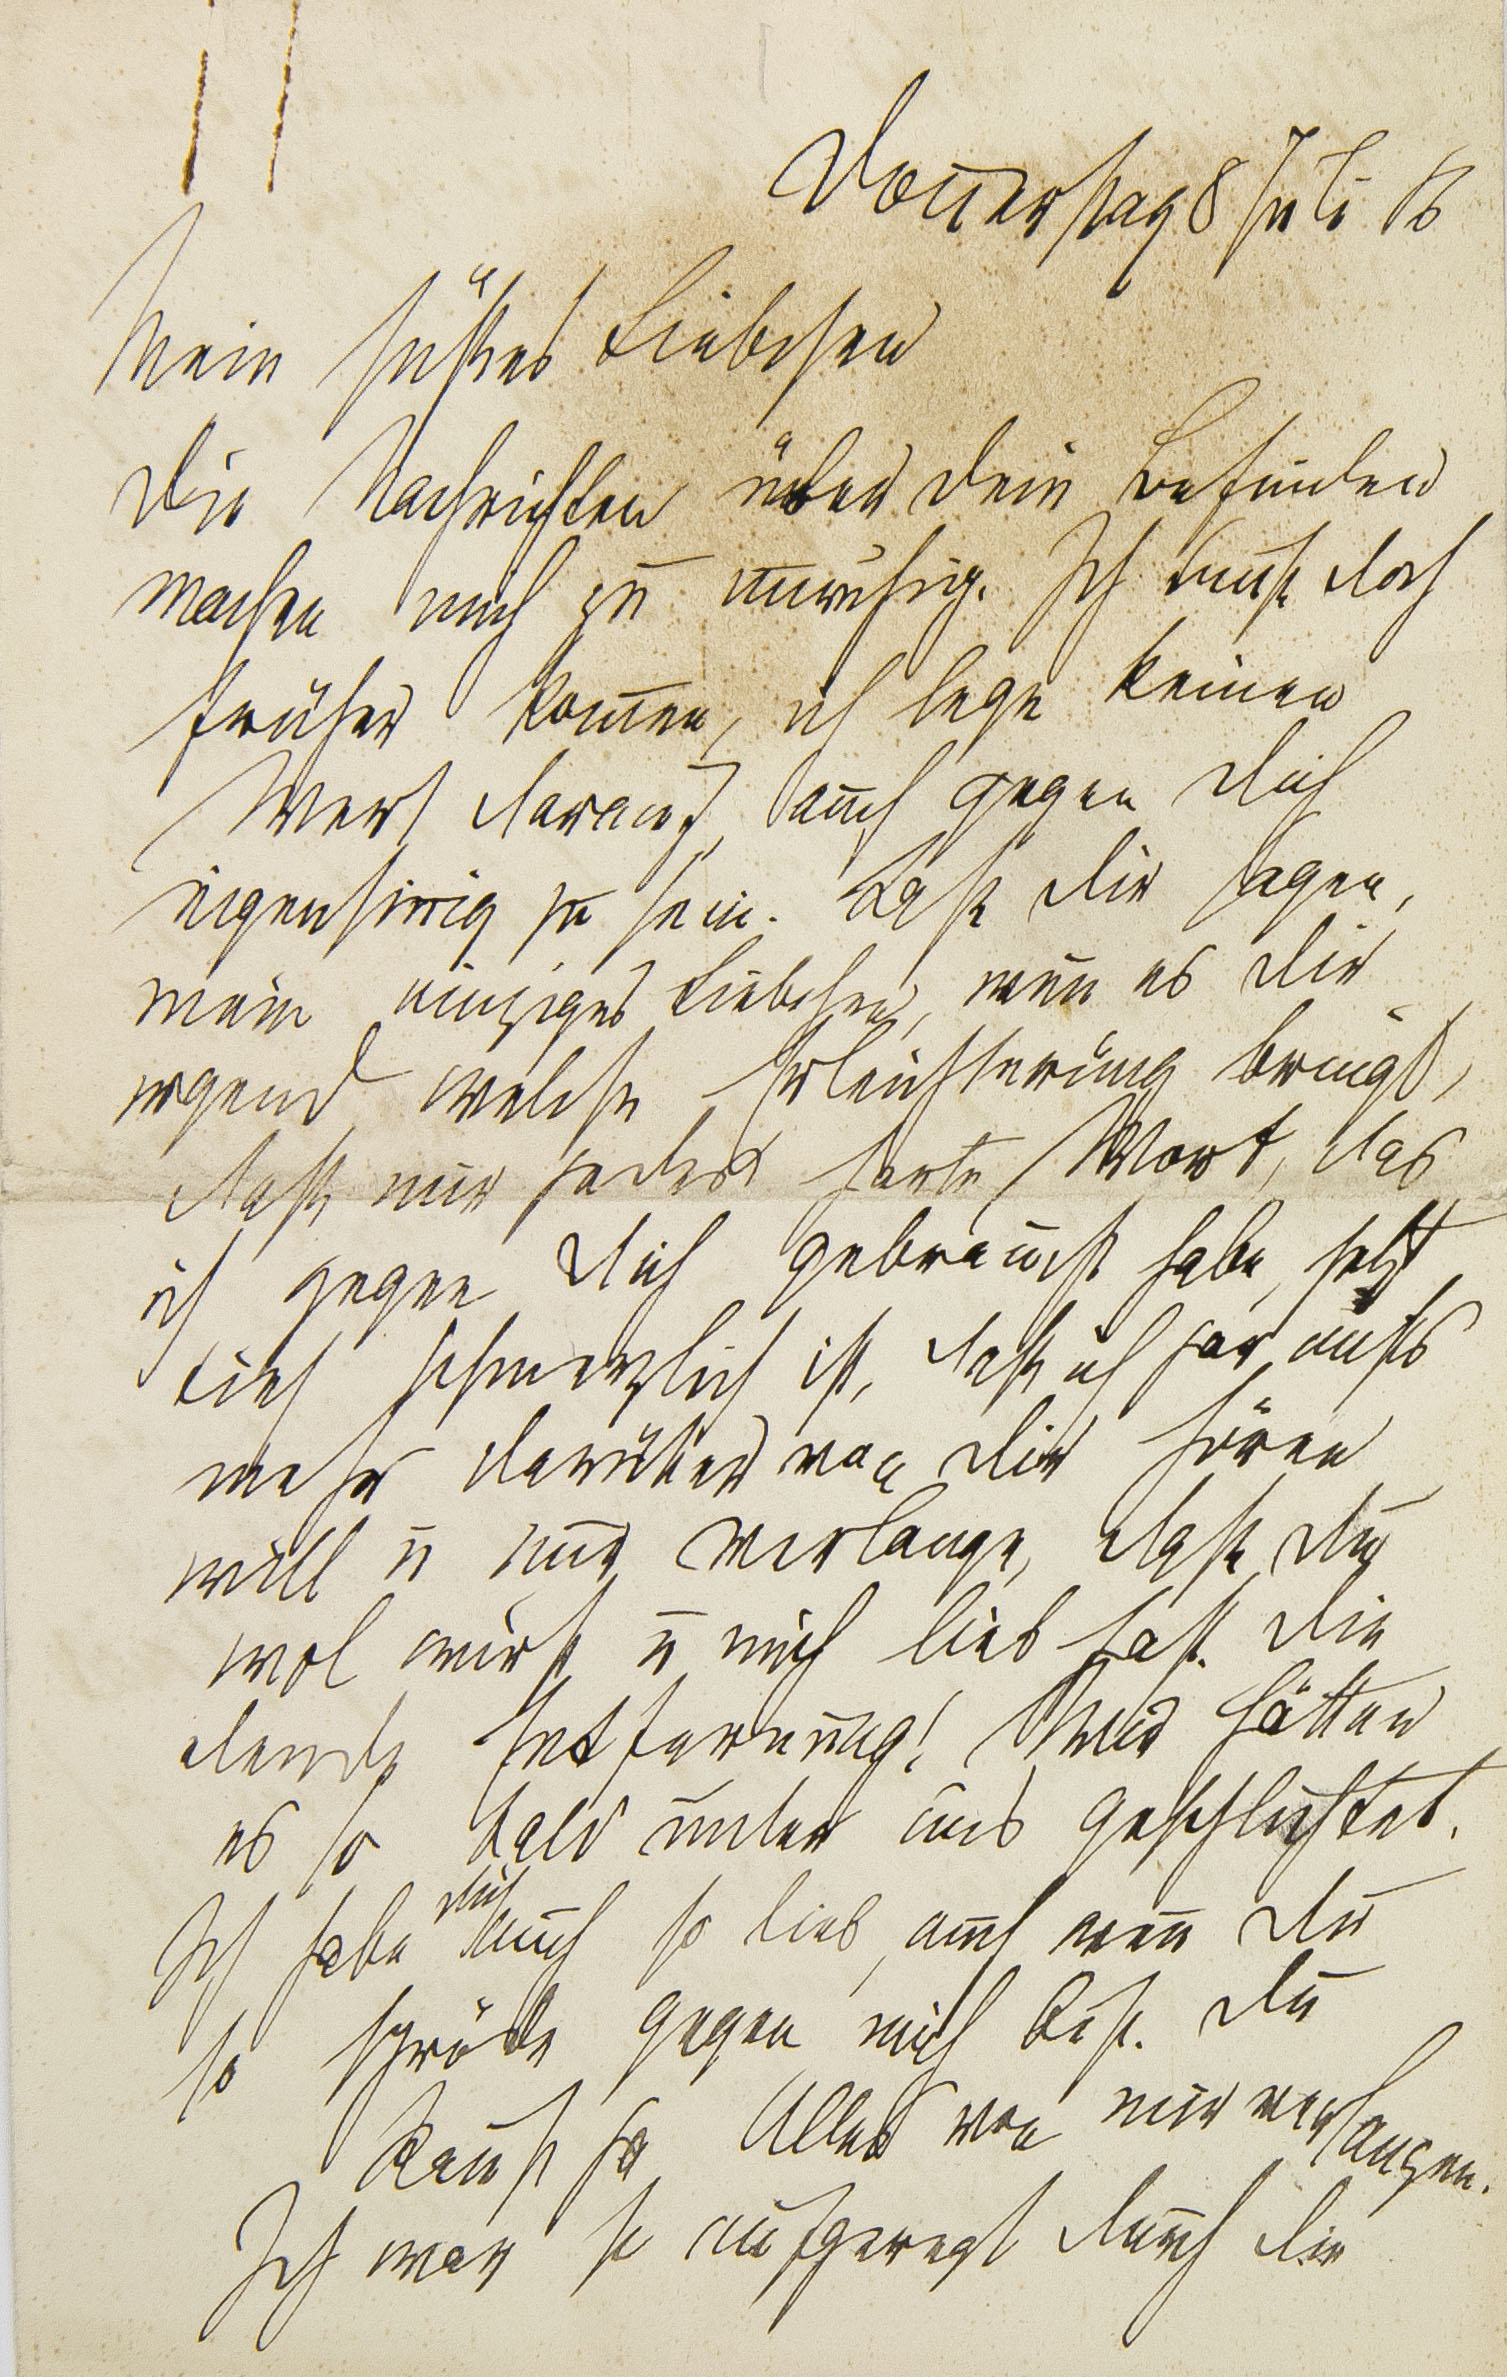 Donnerstag 8 Juli 86
Mein süßes Liebchen
Die Nachrichten über dein Befinden
machen mich zu unruhig. Ich muß doch
früher kommen, ich lege keinen
Wert darauf, auch gegen dich
eigensinnig zu sein. Laß dir sagen,
mein einziges Liebchen, wenn es dir
irgend welche Erleichterung bringt,
daß mir jedes harte Wort, das
ich gegen dich gebraucht habe, jetzt
tief schmerzlich ist, daß ich gar nichts
mehr darüber von dir hören
will u nur verlange, daß du
wol wirst u mich lieb hast. Die
elende Entfernung! Wir hätten
es so bald unter uns geschlichtet.
Ich habe dich auch so lieb, auch wenn du
so spröde gegen mich bist. Du
kannst ja Alles von mir verlangen.
Ich war so aufgeregt durch die